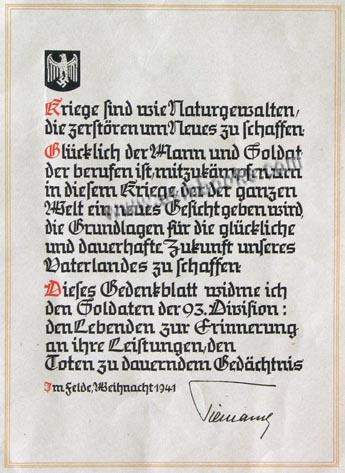 Kriege sind wie Naturgewalten,
die zerstören um Neues zu schaffen.
Glücklich der Mann und Soldat
der berufen ist, mitzukämpfen um
in diesem Kriege, der der ganzen
Welt ein neues Gesicht geben wird,
die Grundlagen für die glückliche
und dauerhafte Zukunft unseres
Vaterlandes zu schaffen.
Dieses Gedenkblatt widme ich
den Soldaten der 93. Division:
den Lebenden zur Erinnerung
an ihre Leistungen, den
Toten zu dauerndem Gedächtnis
Im Felde, Weihnacht 1941
Tiemann